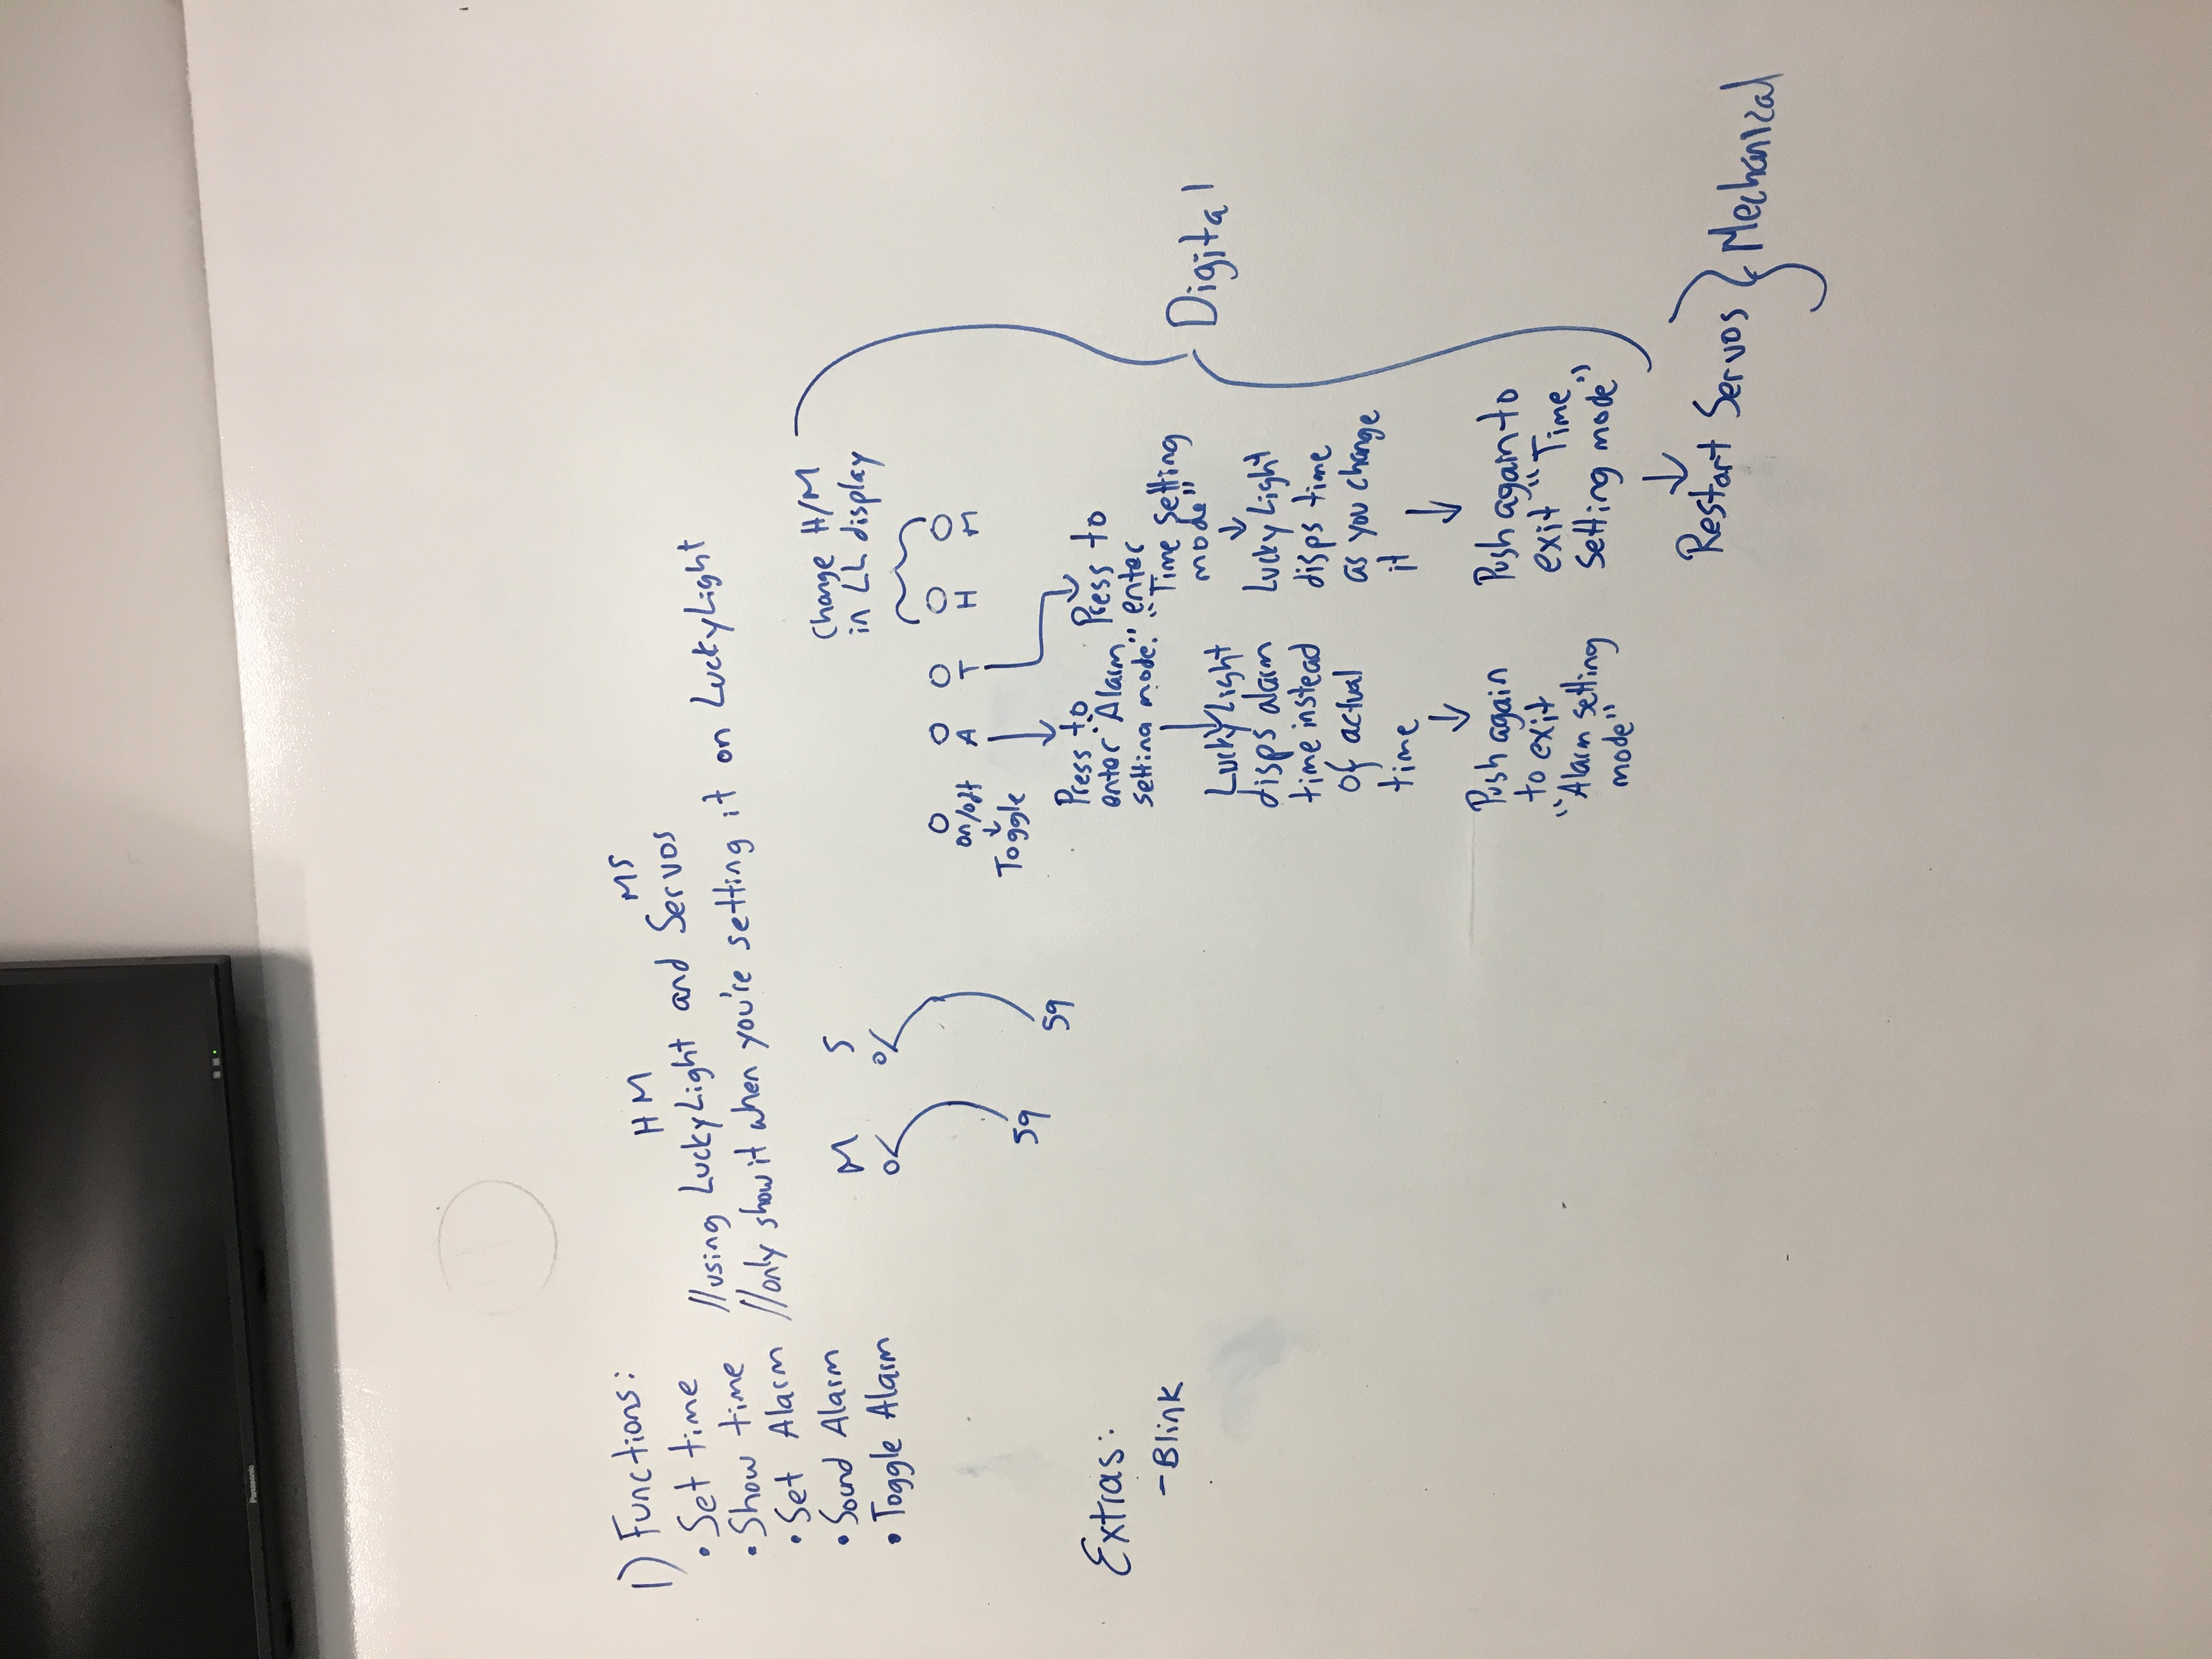 Panasonic
1) Functions:
• Set time
• Show time //using LuckyLight and Servos
HM MS
• Set Alarm //only show it when you're setting it on LuckyLight
• Sound Alarm
• Toggle Alarm
M S
0 0
59 59
Extras:
- Blink
Change H/M
in LL display
on/off A T H M
Toggle
Press to
enter "Alarm
setting mode."
LuckyLight
disps alarm
time instead
of actual
time
Push again
to exit
"Alarm setting
mode"
Press to
enter
"Time setting
mode"
LuckyLight
disps time
as you change
it
Push again to
exit "Time
setting mode"
Restart Servos
Digital
Mechanical